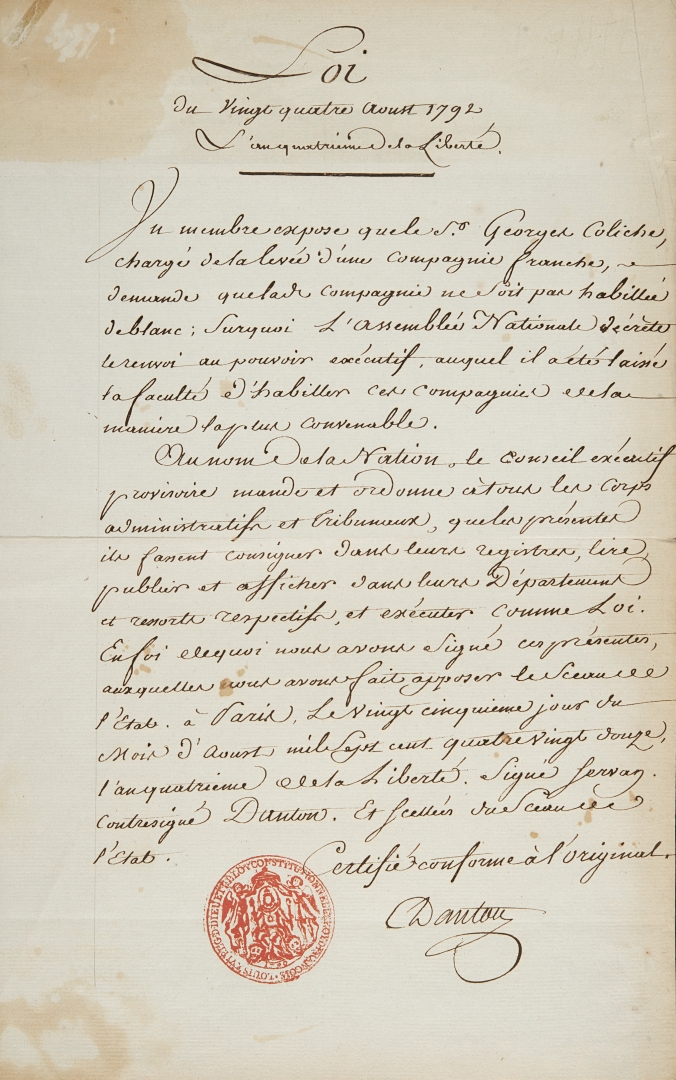 Loi
du Vingt quatre Aoust 1792
L'an quatrieme de la Liberté.
Un membre expose que le S.r Georges Coliche,
chargé de la levée d'une Compagnie franche,
demande que lad.e Compagnie ne soit pas habillée
de blanc ; Surquoi L'Assemblée Nationale décrète
le renvoi au pouvoir exécutif, auquel il a été laissé
la faculté d'habiller ces Compagnies de la
manière la plus convenable.
Au nom de la Nation, le Conseil exécutif
provisoire mande et ordonne à tous les Corps
administratifs et Tribunaux, que les présentes
ils fassent consigner dans leurs registres, lire,
publier et afficher dans leurs Départemens
et ressorts respectifs, et exécuter comme Loi.
En foi de quoi nous avons Signé ces présentes,
auxquelles nous avons fait apposer le Sceau de
l'Etat. à Paris, Le vingt cinquième jour du
Mois d'Aoust mil Sept cent quatre vingt douze,
l'an quatrieme de la Liberté. Signé Servan.
Contresigné Danton. Et Scellées du Sceau de
l'Etat.
Certifié conforme à l'original.
Danton
LOUIS XVI P. LA G. D. DIEU ET P. LA LOY CONSTITUTIONNELLE ROY D. FRANÇOIS